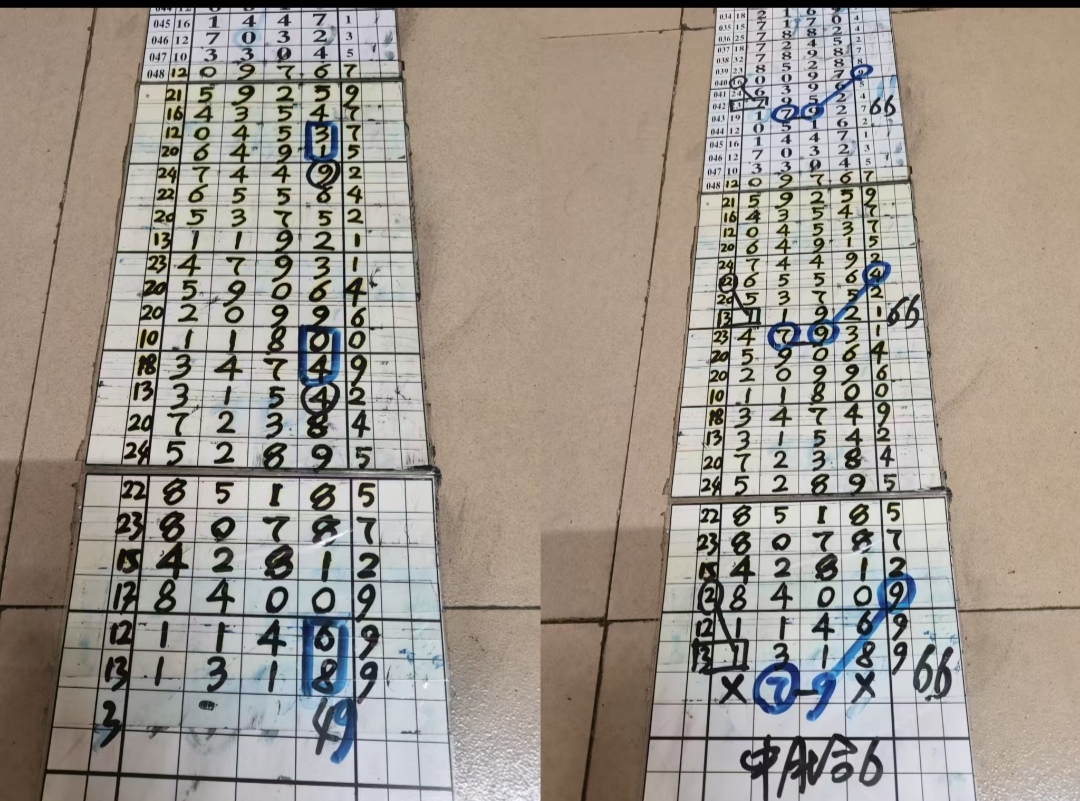 045 16 1 4 4 7 1
046 12 7 0 3 2 3
047 10 3 3 0 4 5
048 12 0 9 7 6 7
21 5 9 2 5 9
16 4 3 5 4 7
12 0 4 5 3 7
20 6 4 9 1 5
24 7 4 4 9 2
22 6 5 5 6 4
20 5 3 7 5 2
13 1 1 9 2 1
23 4 7 9 3 1
20 5 9 0 6 4
20 2 0 9 9 6
10 1 1 8 0 0
18 3 4 7 4 9
13 3 1 5 4 2
20 7 2 3 8 4
24 5 2 8 9 5
22 8 5 1 8 5
23 8 0 7 8 7
15 4 2 8 1 2
12 8 4 0 0 9
12 1 1 4 6 9
13 1 3 1 8 9
3 49
034 18 2 1 6 9
035 15 7 1 7 0 4
036 25 7 8 8 2
037 18 7 2 4 5
038 32 7 8 9 8
039 23 8 5 2 8
040 16 0 0 9 7
041 24 6 3 9 6
042 7 9 5 2
043 19 1 7 9 2 7 66
044 12 0 5 1 6 2
045 16 1 4 4 7 1
046 12 7 0 3 2 3
047 10 3 3 0 4 5
048 12 0 9 7 6 7
21 5 9 2 5 9
16 4 3 5 4 7
12 0 4 5 3 7
20 6 4 9 1 5
24 7 4 4 9 2
22 6 5 5 6 4
20 5 3 7 5 2
13 1 1 9 2 1 66
23 4 7 9 3 1
20 5 9 0 6 4
20 2 0 9 9 6
10 1 1 8 0 0
18 3 4 7 4 9
13 3 1 5 4 2
20 7 2 3 8 4
24 5 2 8 9 5
22 8 5 1 8 5
23 8 0 7 8 7
15 4 2 8 1 2
12 8 4 0 0 9
12 1 1 4 6 9
13 1 3 1 8 9 66
X 7-9 X
中肚合6